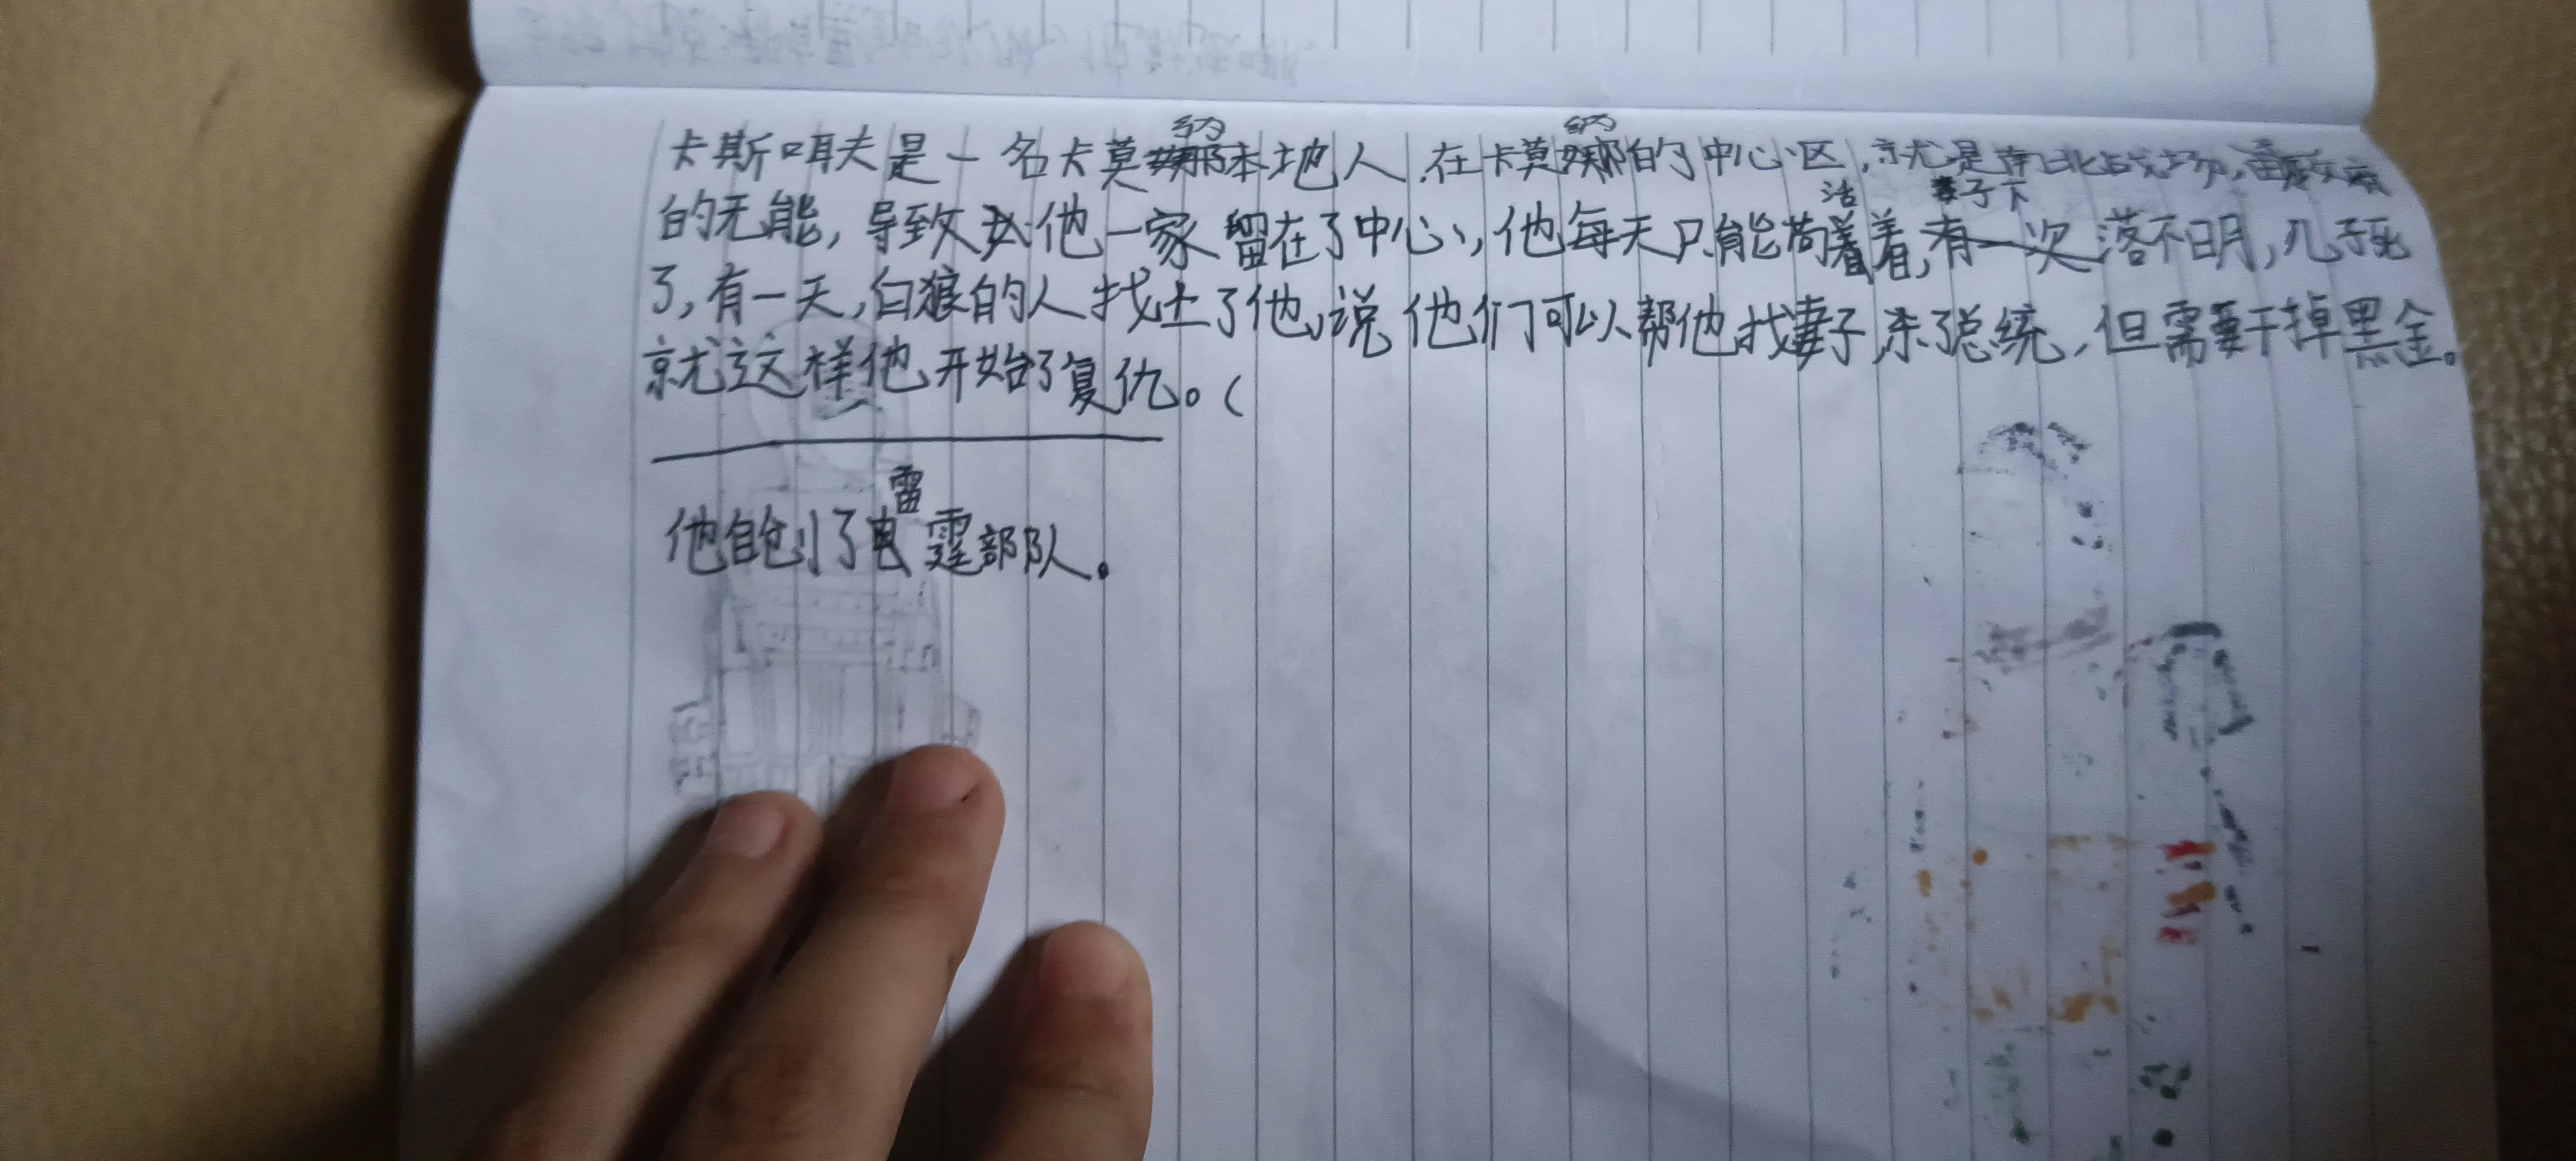 卡斯咡夫是一名卡莫纳本地人,在卡莫纳的中心区,就是南北战场,
的无能,导致他一家留在了中心,他每天只能苟活着,妻子下落不明,儿子死
了,有一天,白狼的人找上了他,说他们可以帮他找妻子,杀了总统,但需要干掉黑金。
就这样他开始了复仇。(
他自创了雷霆部队。